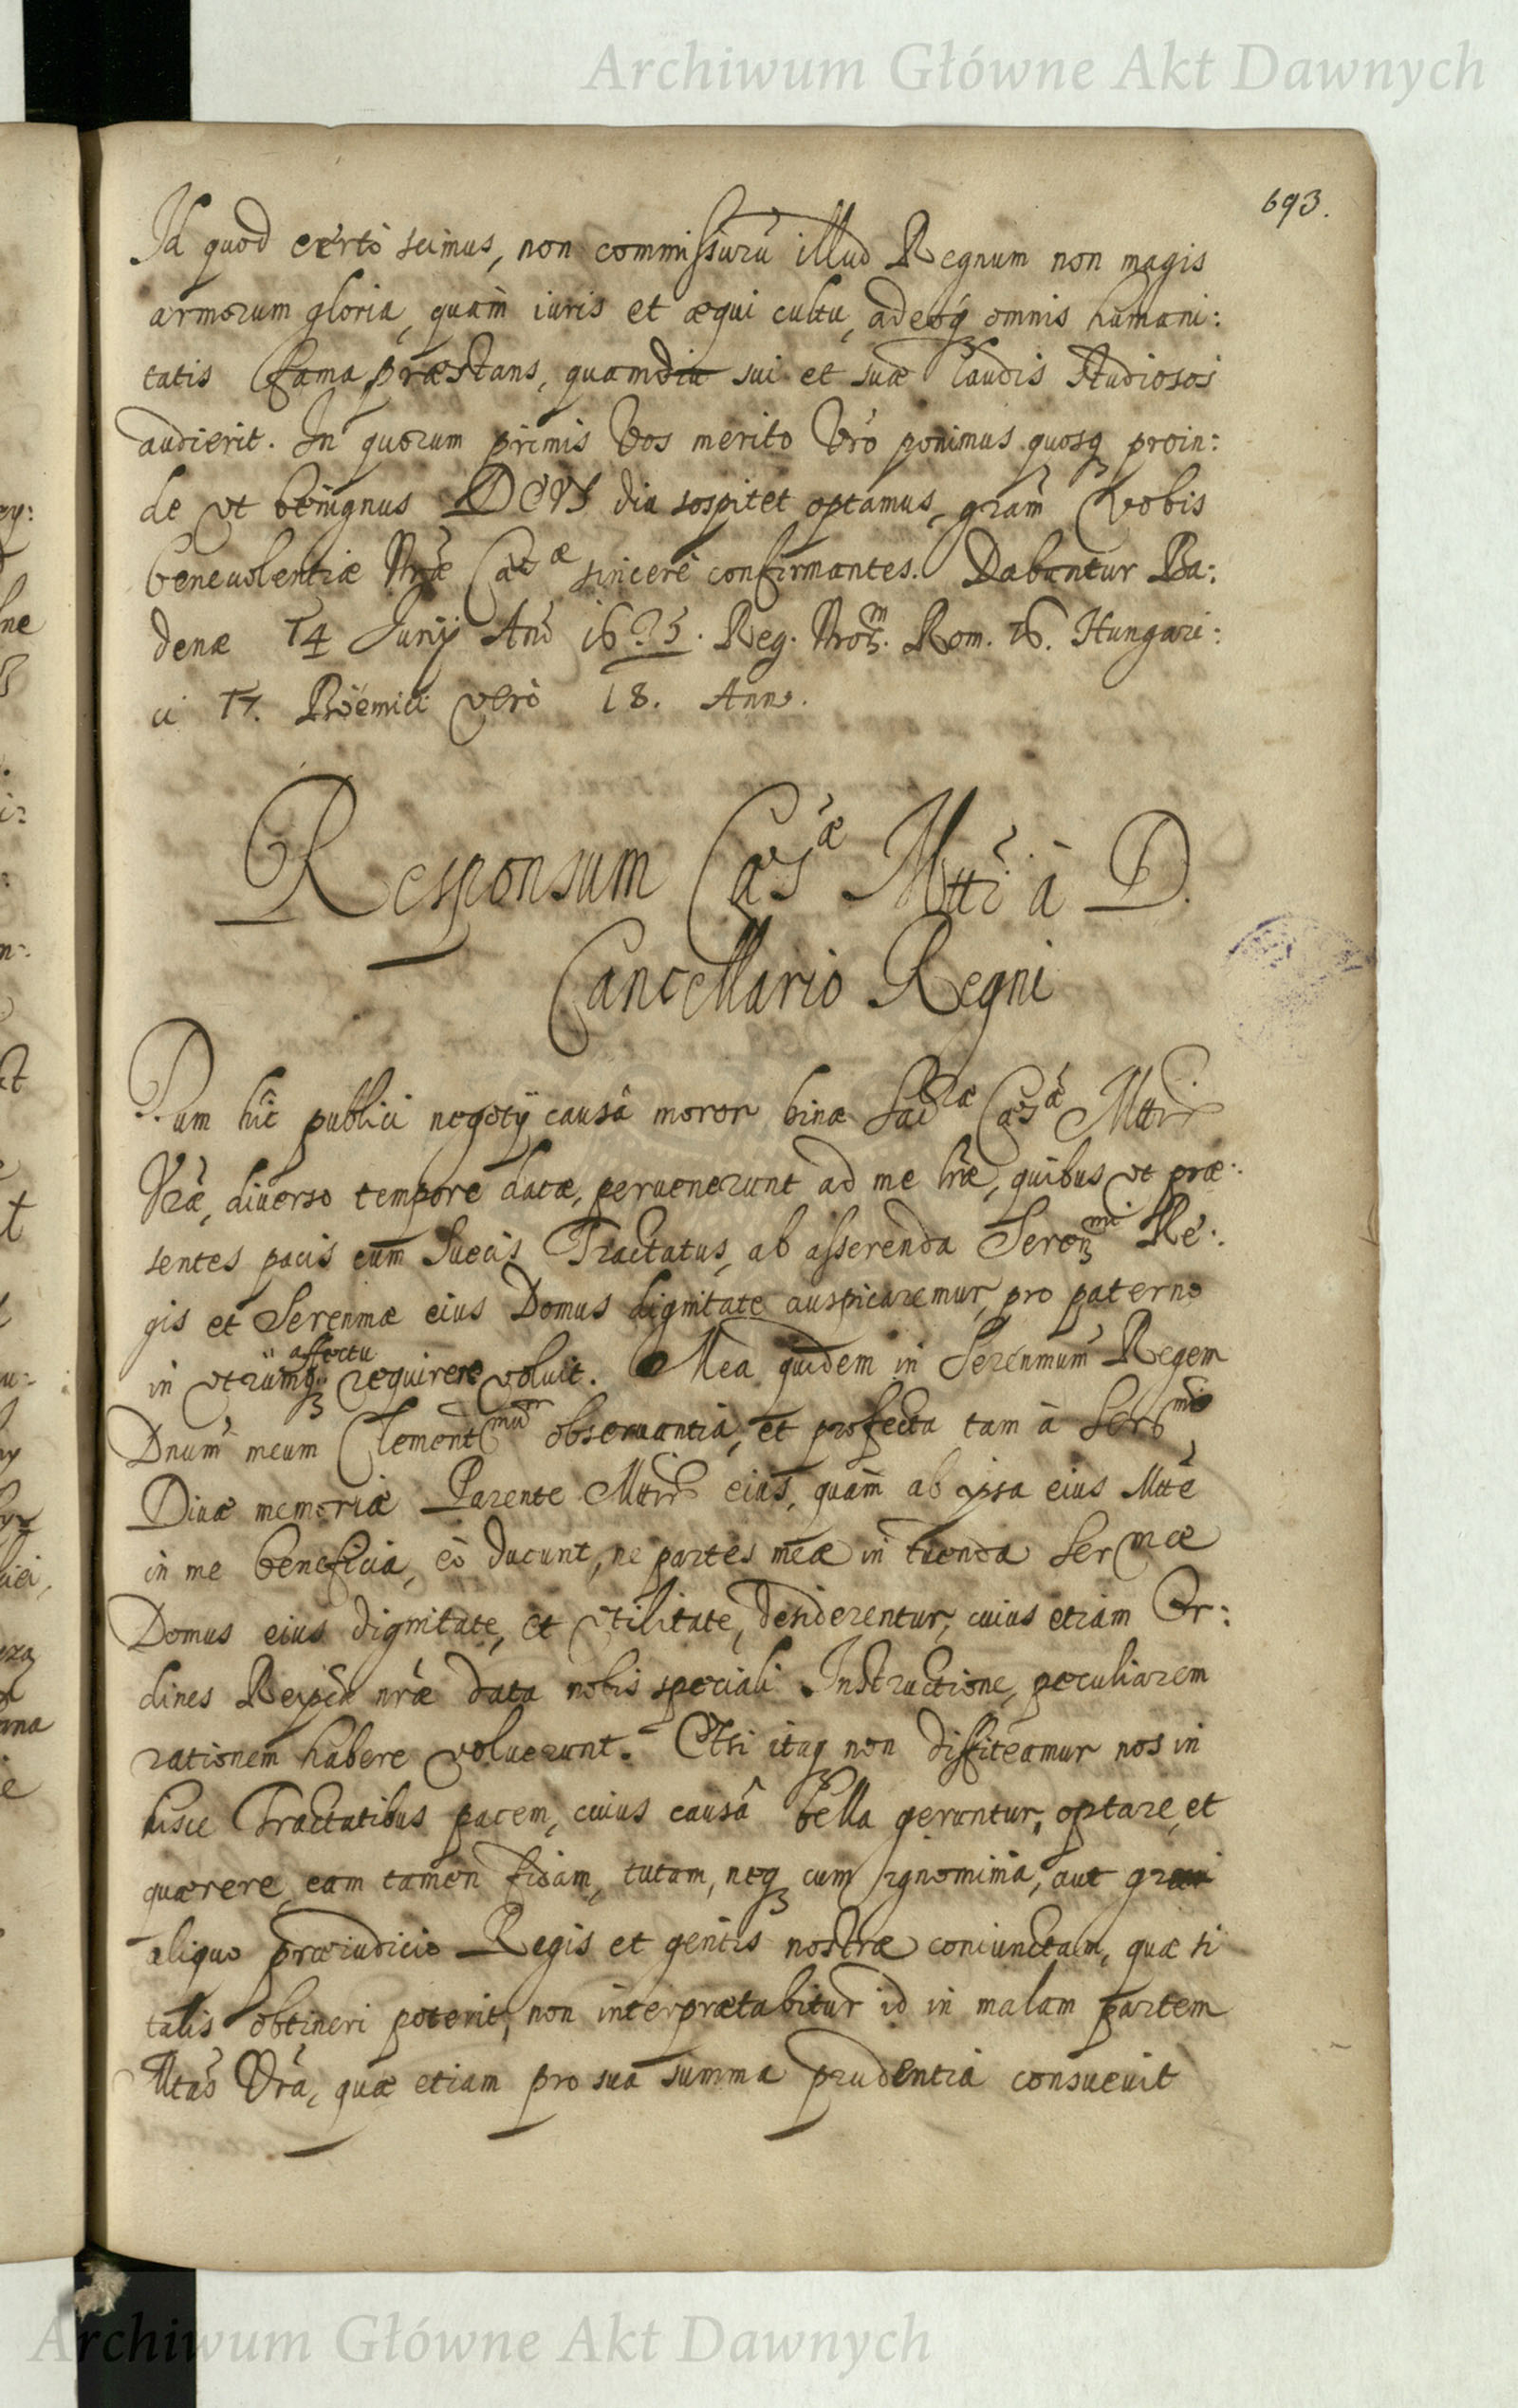 Archiwum Główne Akt Dawnych
693.
Id quod certò scimus, non commissurũ illud Regnum non magis
armorum gloria, quàm iuris et æqui cultu, adeoq; omnis humani:
tatis fama præstans, quamdiu sui et suæ laudis studiosos
audierit. In quorum primis Vos merito Vrõ ponimus quosq; proin:
de vt benignus DEVS diu sospitet optamus, grãm vobis
beneuolentiæ Nræ Cæsæ sincerè confirmantes. Dabantur Ba:
denæ 14 Junij Anõ 1635. Reg. Nrorm. Rom. 16. Hungari:
ci 17. Böemici verò 18. Anno.
Responsum Cæsæ Mtti à D.
Cancellario Regni
Dum hîc publici negotij causâ moror binæ Sacræ Cæsæ Mttis
Vræ, diuerso tempore datæ, peruenerunt ad me lræ, quibus vt præ:
sentes pacis cum Suecis Tractatus, ab asserenda Serenmi Re:
gis et Serenmæ eius Domus dignitate auspicaremur, pro paterno
in vtrumq; affectu requirere voluit. Mea quidem in Serenmum Regem
Dnum meum Clementmum obseruantia, et profecta tam à Sermo
Diuæ memoriæ Parente Mttis eius, quàm ab ipsa eius Mtte
in me beneficia, eò ducunt, ne partes meæ in tuenda Sermæ
Domus eius dignitate, et vtilitate, desiderentur, cuius etiam Or:
dines Reipcæ nræ data nobis speciali Instructione, peculiarem
rationem habere voluerunt. Etsi itaq; non diffiteamur nos in
hisce Tractatibus pacem, cuius causâ bella geruntur, optare, et
quærere, eam tamen fidam, tutam, neq; cum ignominia, aut graui
aliquo præiudicio Regis et gentis nostræ coniunctam, quæ si
talis obtineri poterit, non interprætabitur id in malam partem
Mtas Vrã, quæ etiam pro sua summa prudentia consueuit
Archiwum Główne Akt Dawnych